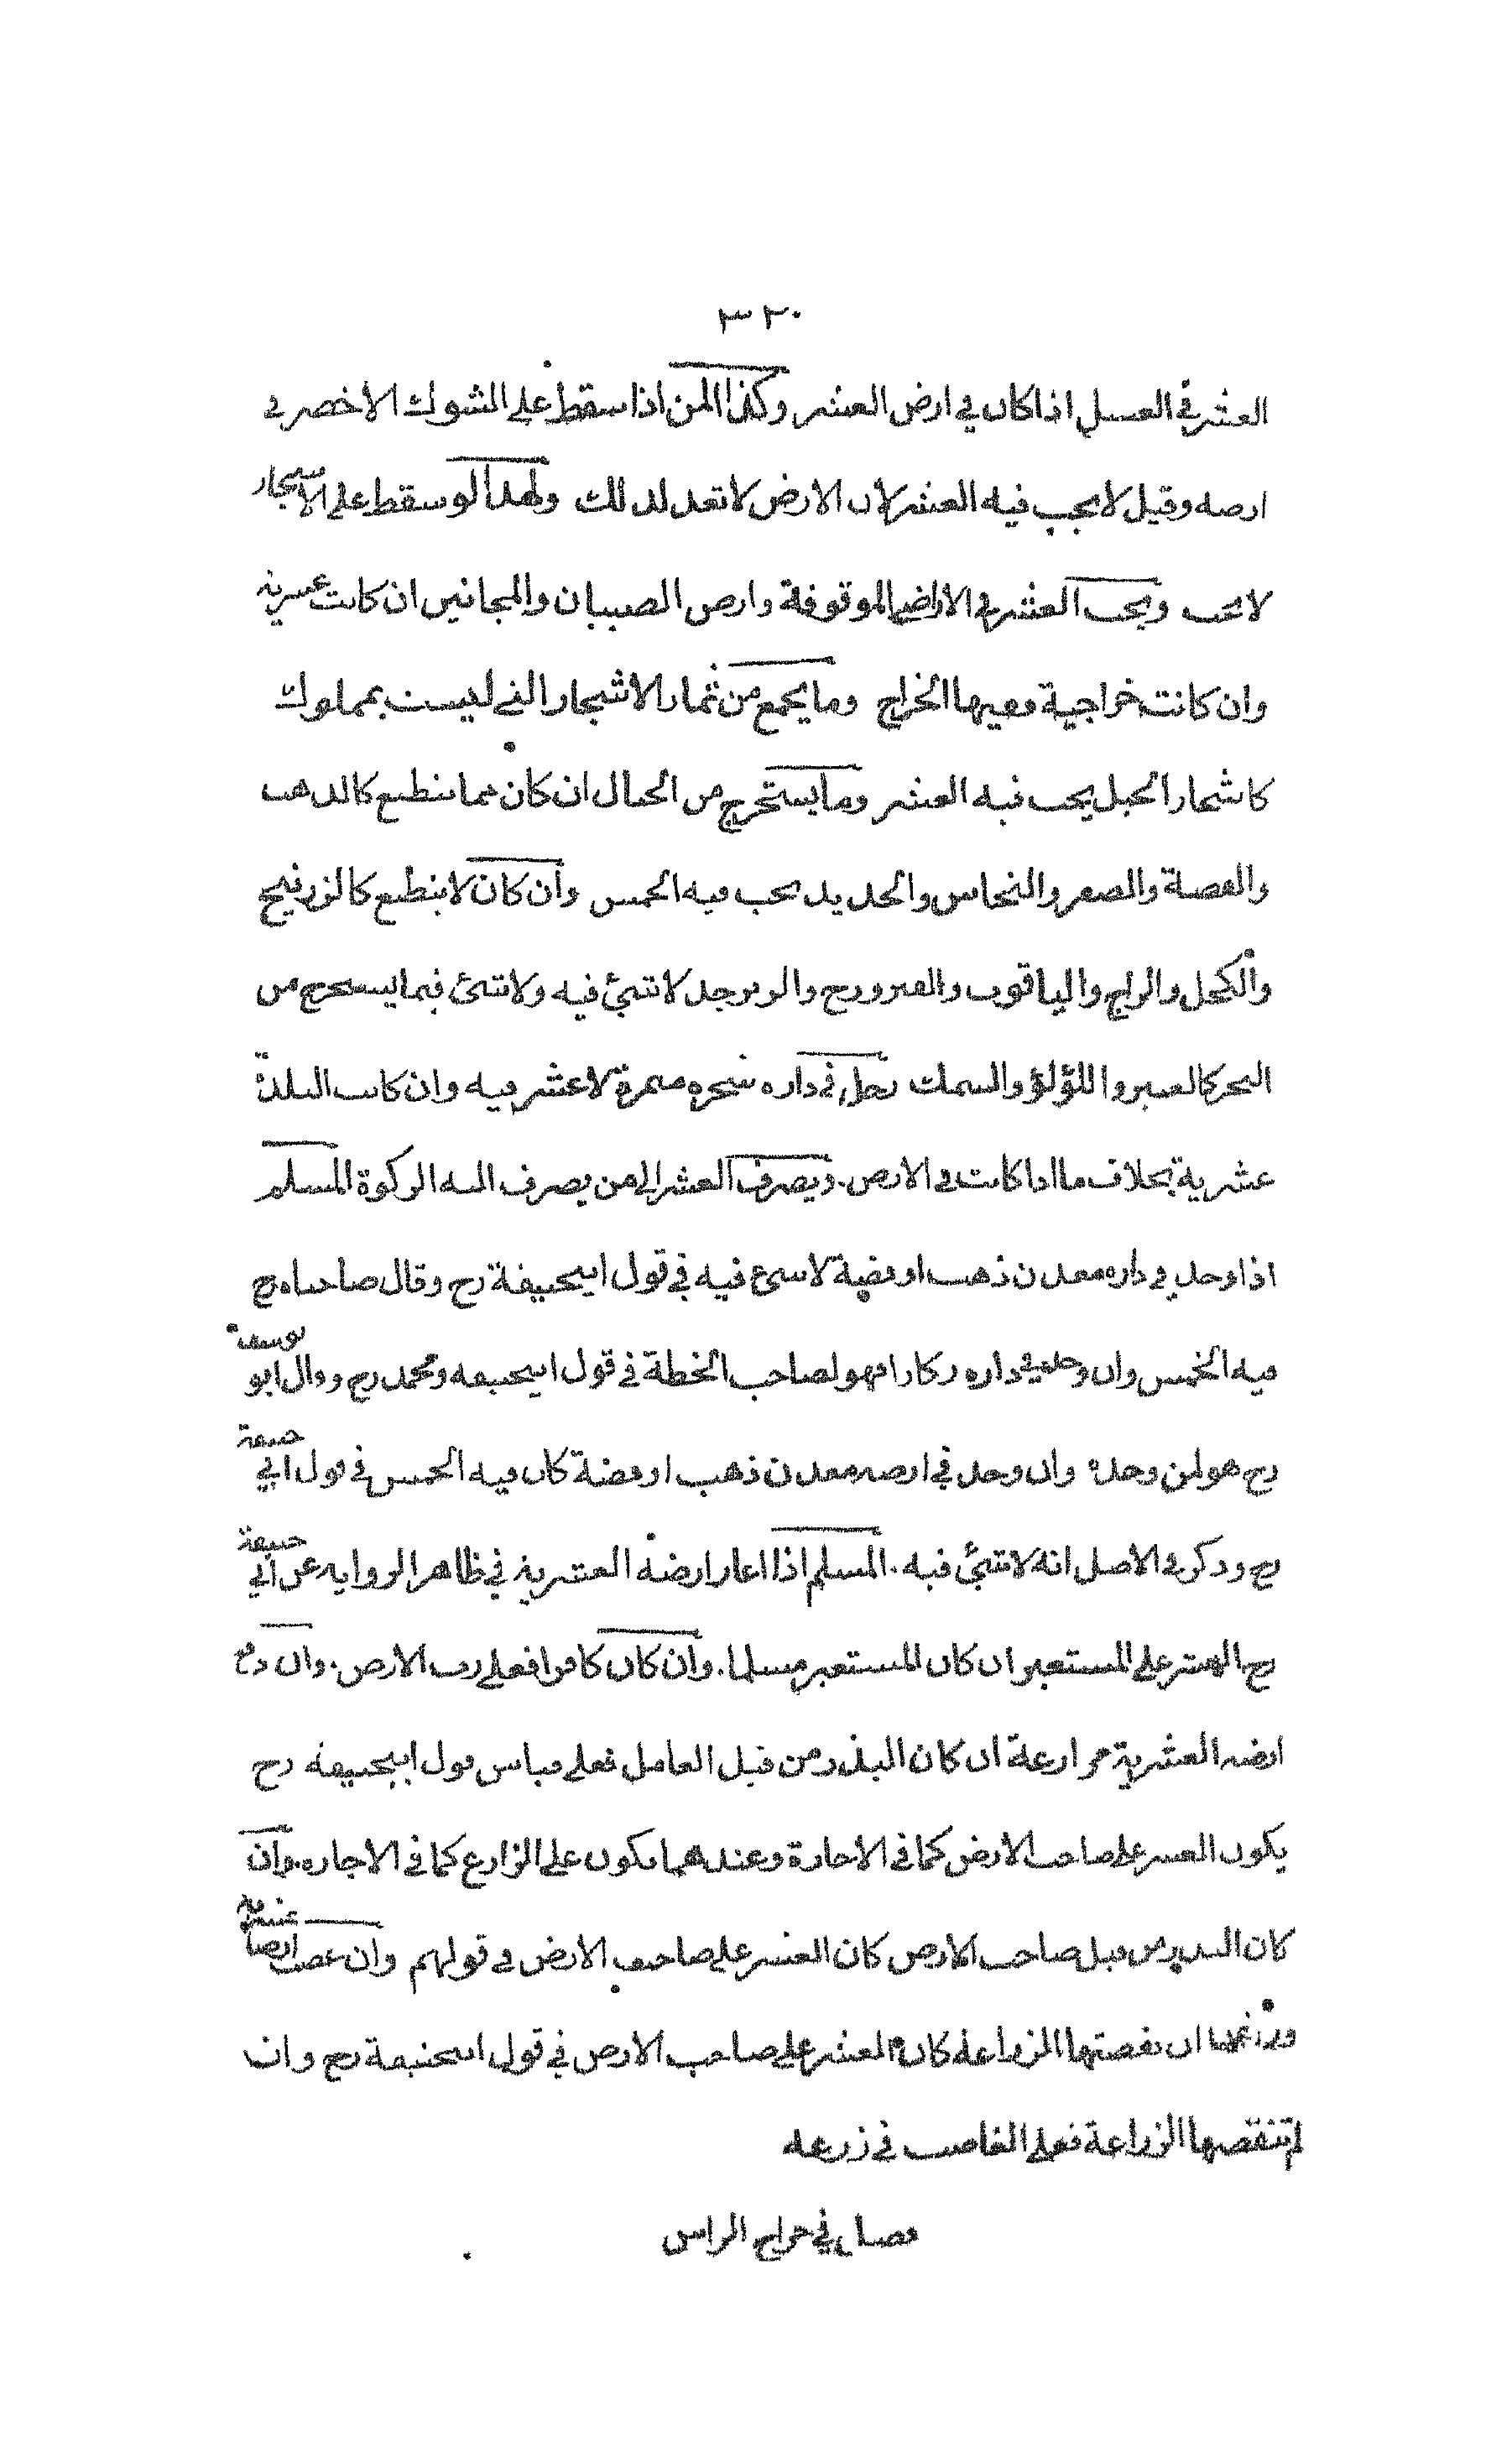 ٣٢٠
العشر في العسل اذا كان في ارض العشر وكذا المن اذا سقط على الشوك الاخضر في
ارضه وقيل لا يجب فيه العشر لان الارض لا تعد لذلك ولهذا لو سقط على الاشجار
لا يجب ويجب العشر في الاراضي الموقوفة وارض الصبيان والمجانين ان كانت عشرية
وان كانت خراجية ففيها الخراج وما يجمع من ثمار الاشجار التي ليست بمملوك
كاشجار الجبل يجب فيه العشر وما يستخرج من الجبال ان كان مما ينطبع كالذهب
والفضة والصفر والنحاس والحديد يجب فيه الخمس وان كان لا ينطبع كالزرنيخ
والكحل والزاج والياقوت والفيروزج والزبرجد لا شئ فيه ولا شئ فيما يستخرج من
البحر كالعنبر واللؤلؤ والسمك رجل في داره شجره مثمرة لا عشر فيه وان كانت البلدة
عشرية بخلاف ما اذا كانت في الارض. ويصرف العشر الى من يصرف اليه الزكوة المسلم
اذا وجد في داره معدن ذهب او فضة لا شئ فيه في قول ابيحنيفة رح وقال صاحباه رح
فيه الخمس وان وجد في داره ركازا فهو لصاحب الخطة في قول ابيحنيفه ومحمد رح وقال ابو يوسف
رح هو لمن وجده وان وجد في ارضه معدن ذهب او فضة كان فيه الخمس في قول ابي حنيفة
رح وذكر في الاصل انه لا شئ فيه. المسلم اذا اعار ارضه العشرية في ظاهر الروايه عن ابي حنيفة
رح العشر على المستعير ان كان المستعير مسلما. وان كان كافرا فعلى رب الارض. وان دفع
ارضه العشرية مزارعة ان كان البذر من قبل العامل فعلى قياس قول ابيحنيفه رح
يكون العشر على صاحب الارض كما في الاجارة وعندهما يكون على الزارع كما في الاجاره. وان
كان البذر من قبل صاحب الارض كان العشر على صاحب الارض في قولهم وان غصب ارضا عشرية
وزرعها ان نقصتها الزراعة كان العشر على صاحب الارض في قول ابيحنيفة رح وان
لم تنقصها الزراعة فعلى الغاصب في زرعه
فصل في خراج الراس